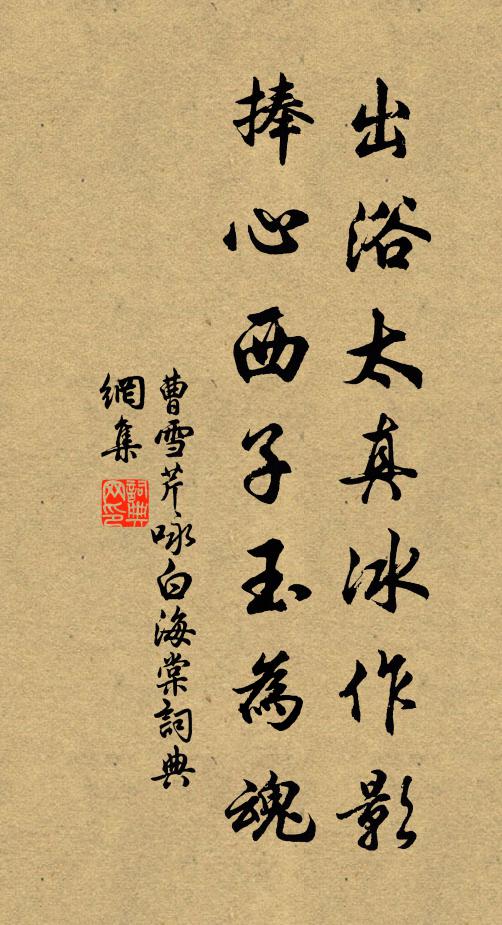 出浴太真冰作影
捧心西子玉為魂
曹雪芹咏白海棠詞典
網集
詞典
网印